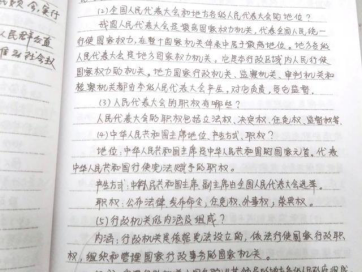 (2)全国人民代表大会和地方各级人民代表大会的地位?
我国人民代表大会是国家权力机关,代表全国人民统一
行使国家权力,在整个国家机关体系中居于最高地位。地方各级
人民代表大会是地方国家权力机关,它是本行政区域内人民行使
国家权力的机关。地方国家行政机关、监察机关、审判机关和
检察机关都由本级人民代表大会产生,对它负责,受它监督。
(3)人民代表大会的职权有哪些?
人民代表大会的职权包括立法权、决定权、任免权、监督权等
(4)中华人民共和国主席地位、产生方式、职权?
地位:中华人民共和国主席是中华人民共和国的国家元首。代表
中华人民共和国行使宪法赋予的职权。
产生方式:中华人民共和国主席、副主席由全国人民代表大会选举。
职权:公布法律、发布命令,任免权、外事权,荣典权。
(5)行政机关及内涵及组成?
内涵:行政机关是依据宪法设立的,依法行使国家行政职
权,组织和管理国家行政事务的国家机关。